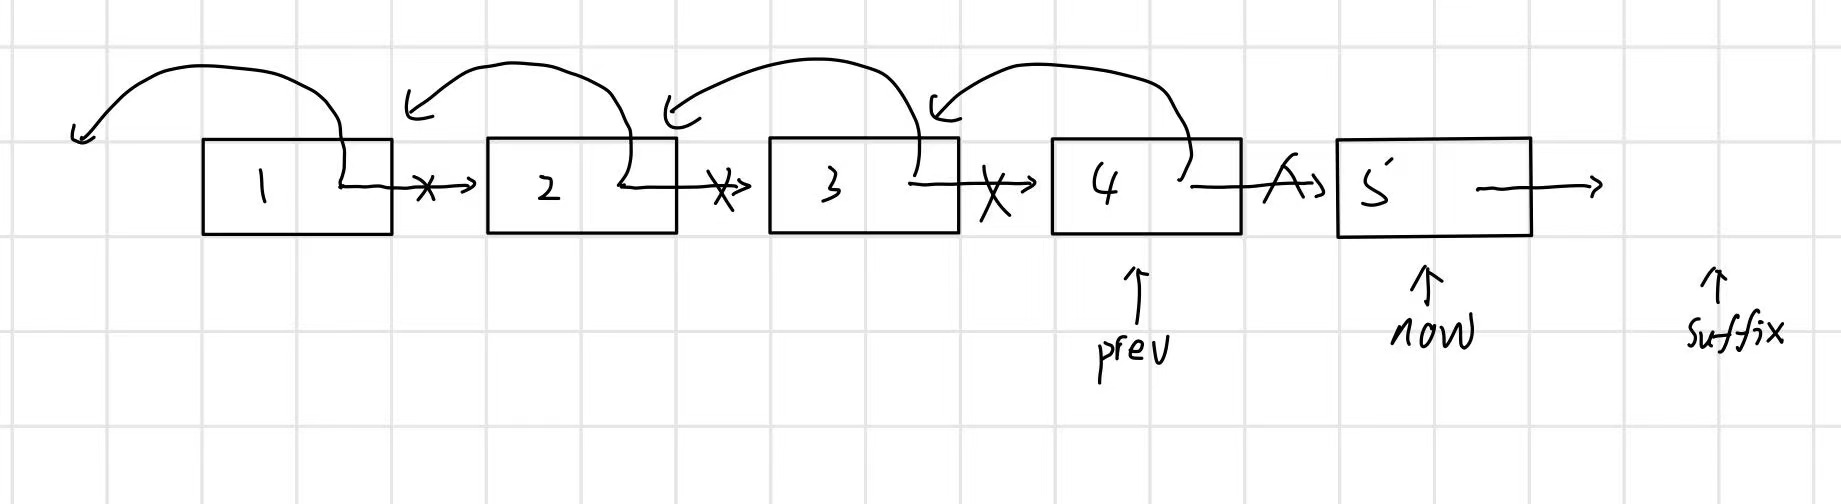 1 2 3 4 5
prev now suffix